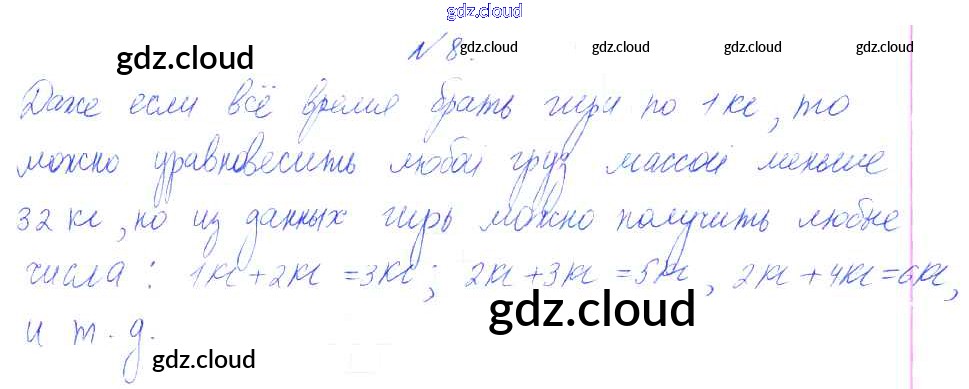 gdz.cloud
gdz.cloud
№ 8.
gdz.cloud gdz.cloud gdz.cloud gdz.cloud
Даже если всё время брать гири по 1 кг, то
можно уравновесить любой груз массой меньше
32 кг, но из данных гирь можно получить любые
числа: 1кг+2кг=3кг; 2кг+3кг=5кг, 2кг+4кг=6кг,
gdz.cloud
и т.д.
gdz.cloud